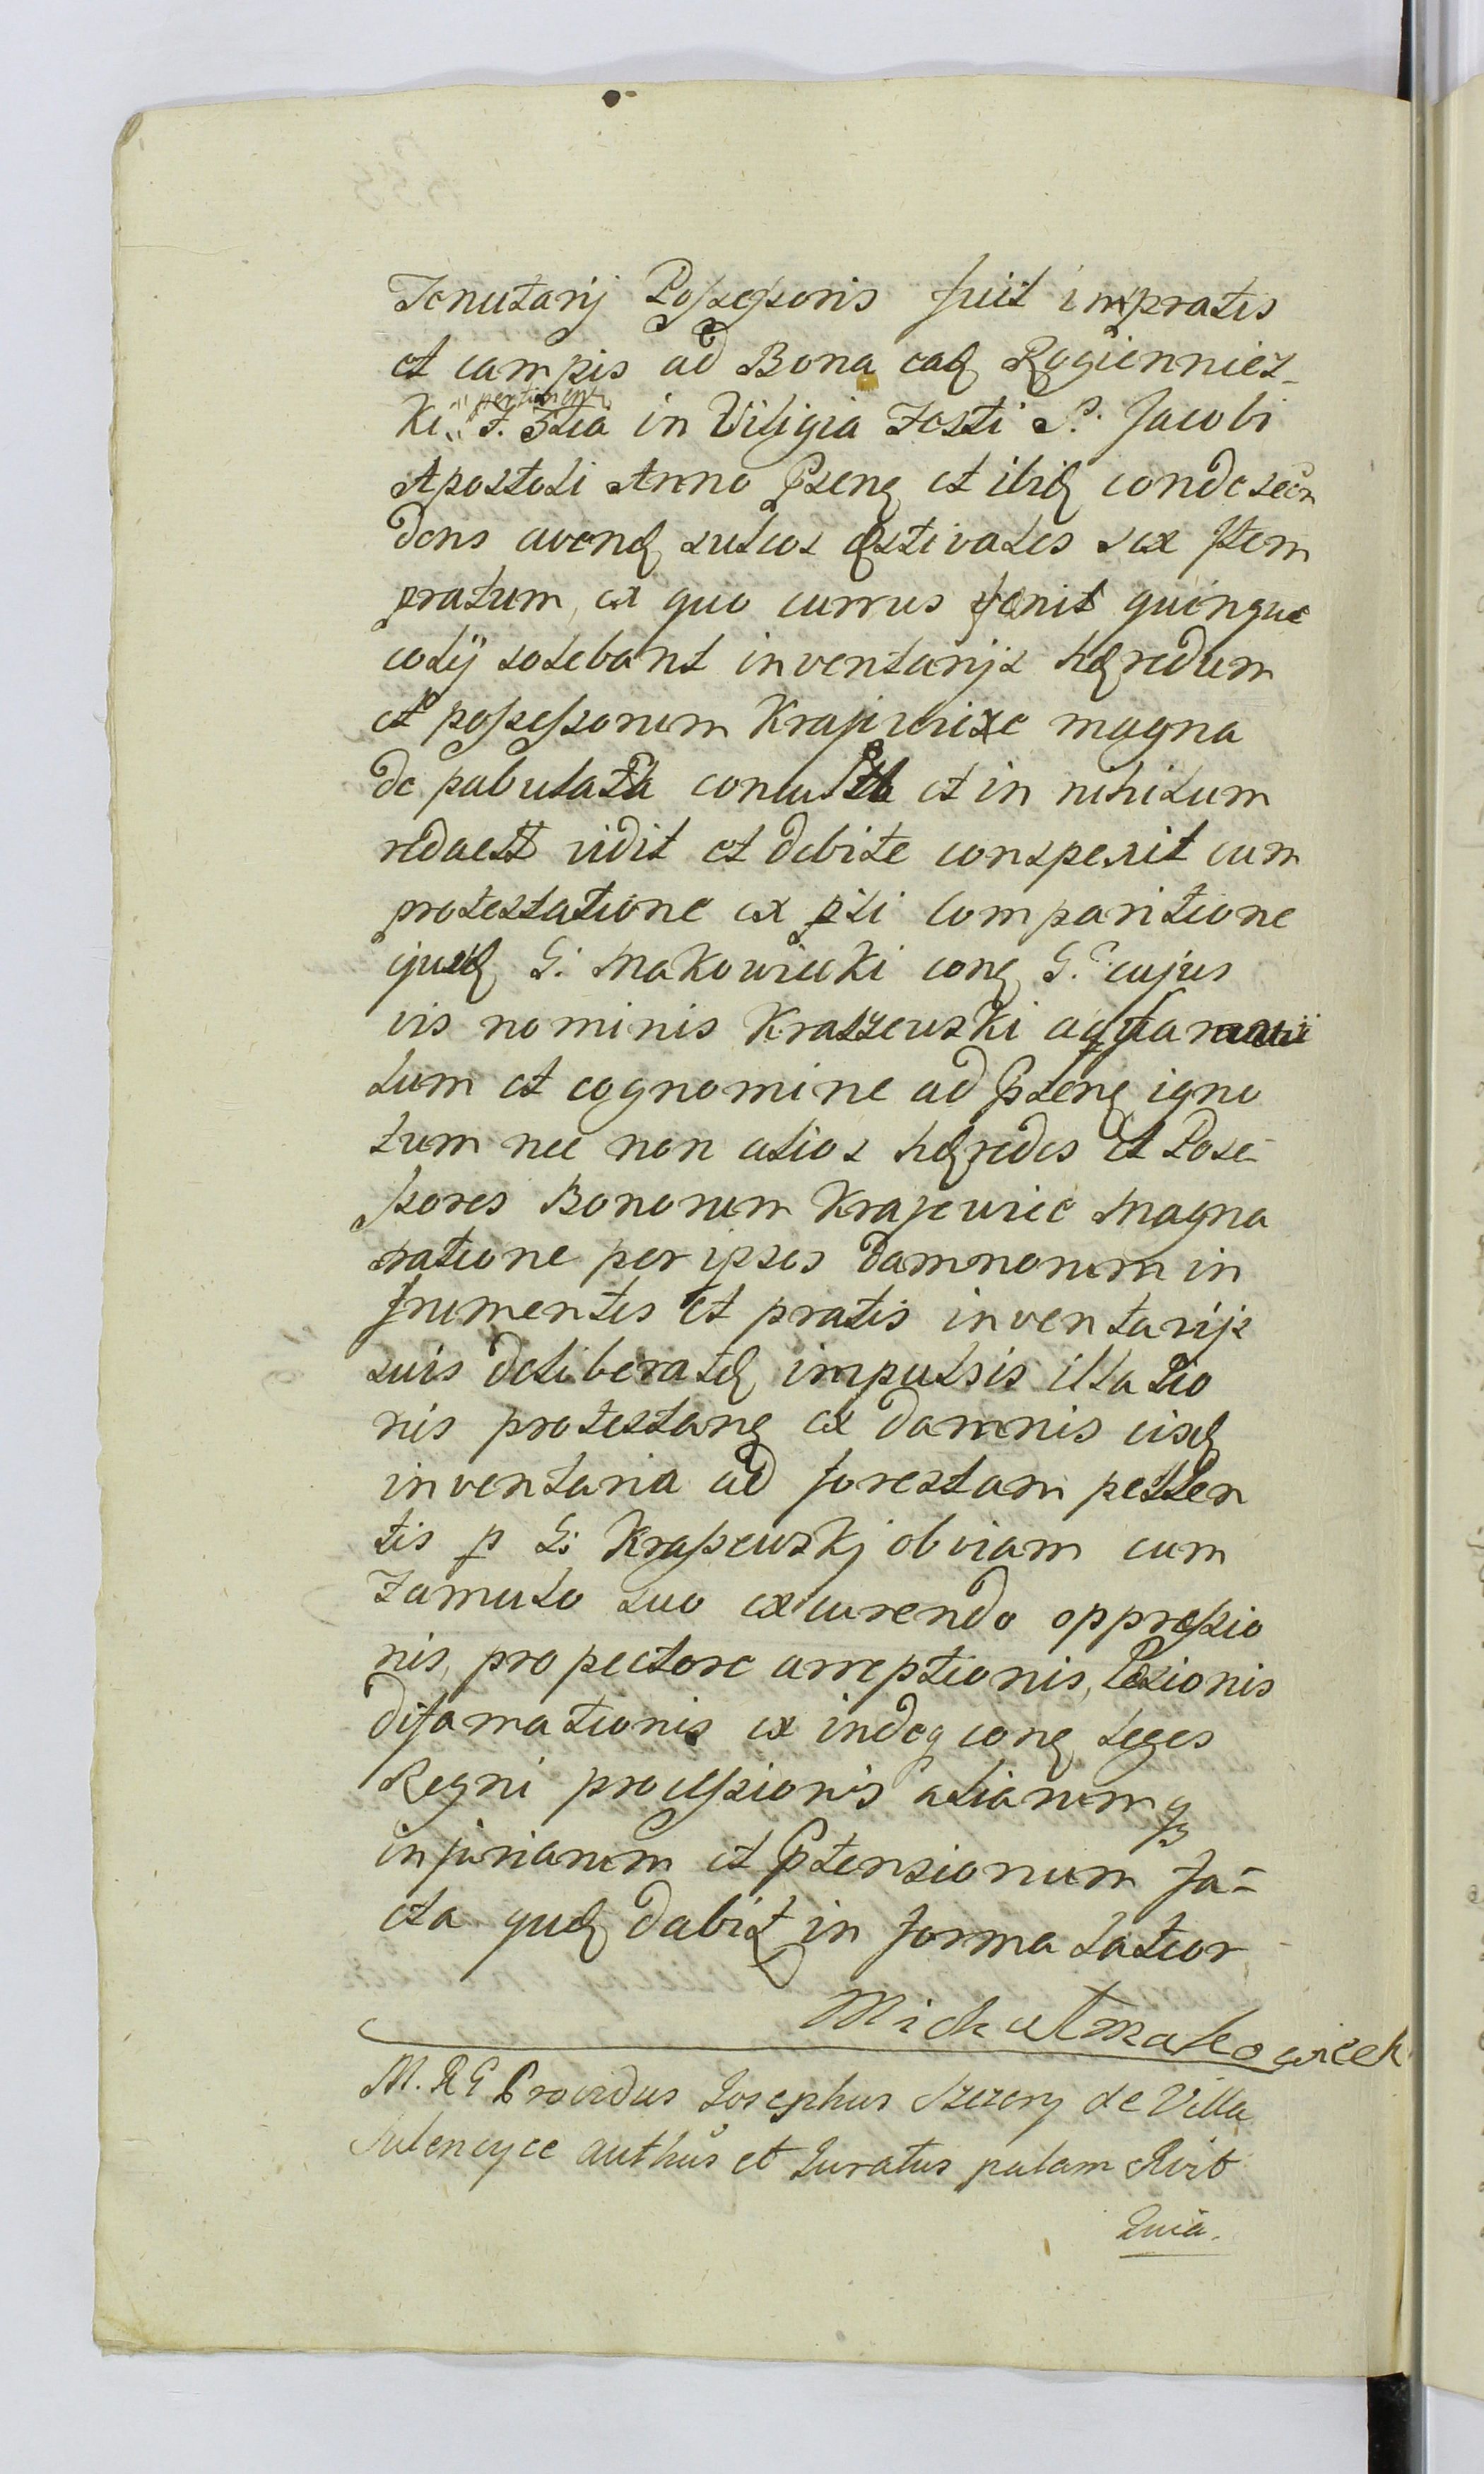 Tenutarij Possessoris fuit in pratis
et campis ad Bona eadę Rogiennież-
ki pertinen F. 3tia in Viligia Festi S. Jacobi
Apostoli Anno Psenę et ibidę condescen
dens avenę sulcos ęstivales sex Item
pratum, ex quo currus fenit quinque
colij solebant inventarijs hęredum
et possessorum Krajewixe magna
de pabulata et in nihilum
redact vidit et debite conspexit cum
protestatione ex psti comparitione
ejusdę G. Makowiecki conę G. cujus
vis nominis Kraszewski
tum et cognomine ad Psenę igno
tum nec non alios hęredes et Pose-
ssores Bonorum Krajewice Magna
ratione per ipsos damnorum in
frumentis et pratis inventarijs
suis deliberatę impulsis illatio
nis protestanę ex damnis eisdę
inventaria ad forestam pellen
tis p G: Krassewskj obviam cum
Famulo suo excurendo oppressio
nis, pro pectore arreptionis, Lesionis
difamationis ex indeq conę leges
Regni processionis aliarumq
injuriarum et Ptensionum Fa=
cta quę dabit in forma latior
Michał Makowieck
M. R G Providus Josephus Szczery de Villa
Sulencyce authus et Juratus palam Rivit
Quia.